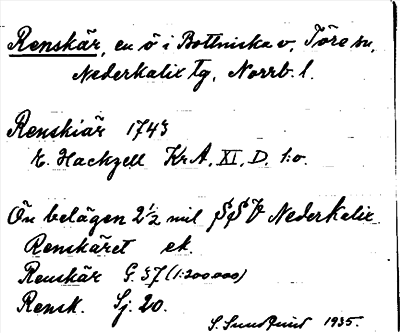 Renskär, en ö i Bottniska v. Töre sn,
Nederkalix tg, Norrb. l.
Renskiär 1743
E. Hackzell KrA, XI, D, 1:o.
Ön belägen 2 1/2 mil S S V Nederkalix
Renskäret ek.
Renskär G. 37 (1:200000)
Rensk. Sj. 20.
S. Sundqvist 1935.